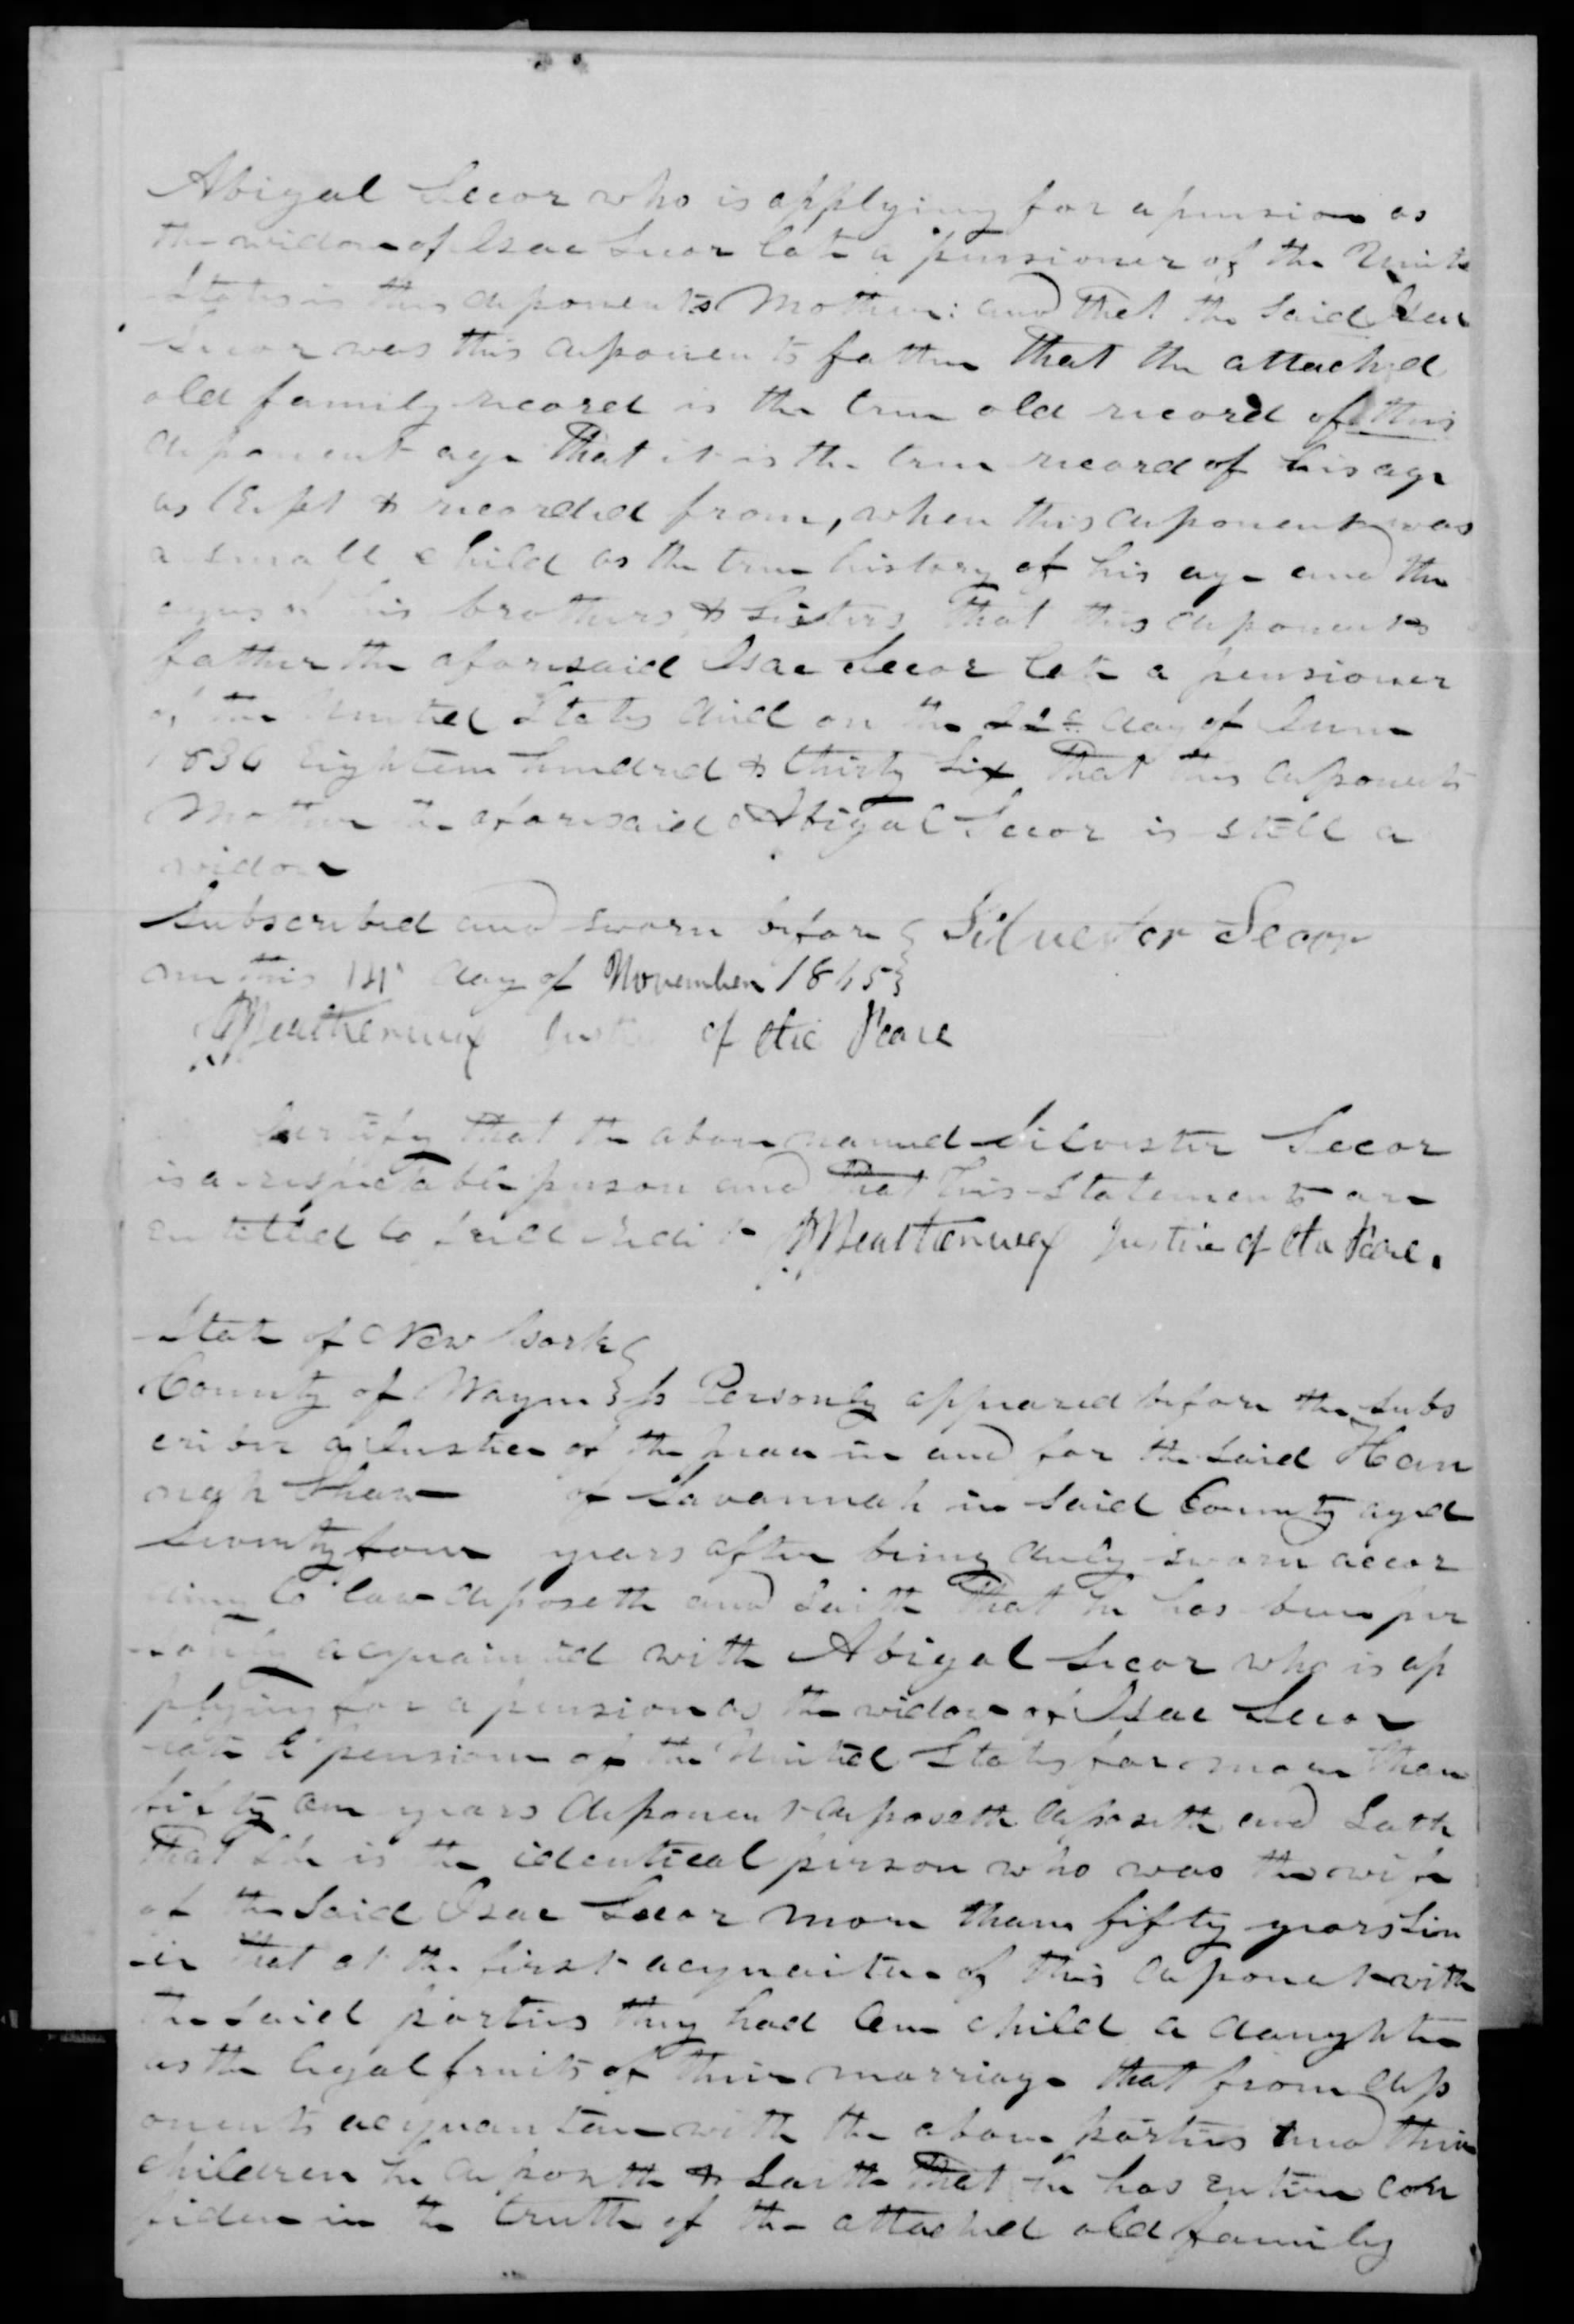 Abigal Secor who is applying for a pension as
the widow of Isac Secor late a pensioner of the Unite
States is this deponents Mother: and that the said Isac
Secor was this deponents father That the attached
old family record is the true old record of this
deponent age That it is the true record of his age
as kept & recorded from, when this deponent was
a small child as the true history of his age and the
ages of his brothers & Sisters That this deponents
father the aforesaid Isac Secor late a pensioner
of the United States died on the day of June
1836 Eighteen hundred & thirty Six That this deponents
Mother the aforesaid Abigal Secor is still a
widow
Subscribed and sworn before } Silvester Secor
me this 14 day of November 1845 }
of the Peace
Certify that the above named Silvester Secor
is a respectable person and that his Statements are
entitled to full credit Justice of the Peace.
State of New York }
County of Wayne } ss Personly appeared before the subs
criber a Justice of the peace in and for the said Han
nah Shaw of Savannah in said County aged
Seventy four years after being duly sworn accor
ding to law deposeth and saith That he has been per
sonly acquainted with Abigal Secor who is ap
plying for a pension as the widow of Isac Secor
late a pension of the United States for more than
fifty one years deponent deposeth deposeth and Saith
That She is the identical person who was the wife
of the said Isac Secor more than fifty years Sin
ce that at the first acquaitne of this deponet with
the said parties they had one child a daughter
as the legal fruits of their marriage that from dep
onents acquantance with the above parties and their
children he deposeth & Saith That he has entire con
fidence in the truth of the attached old family